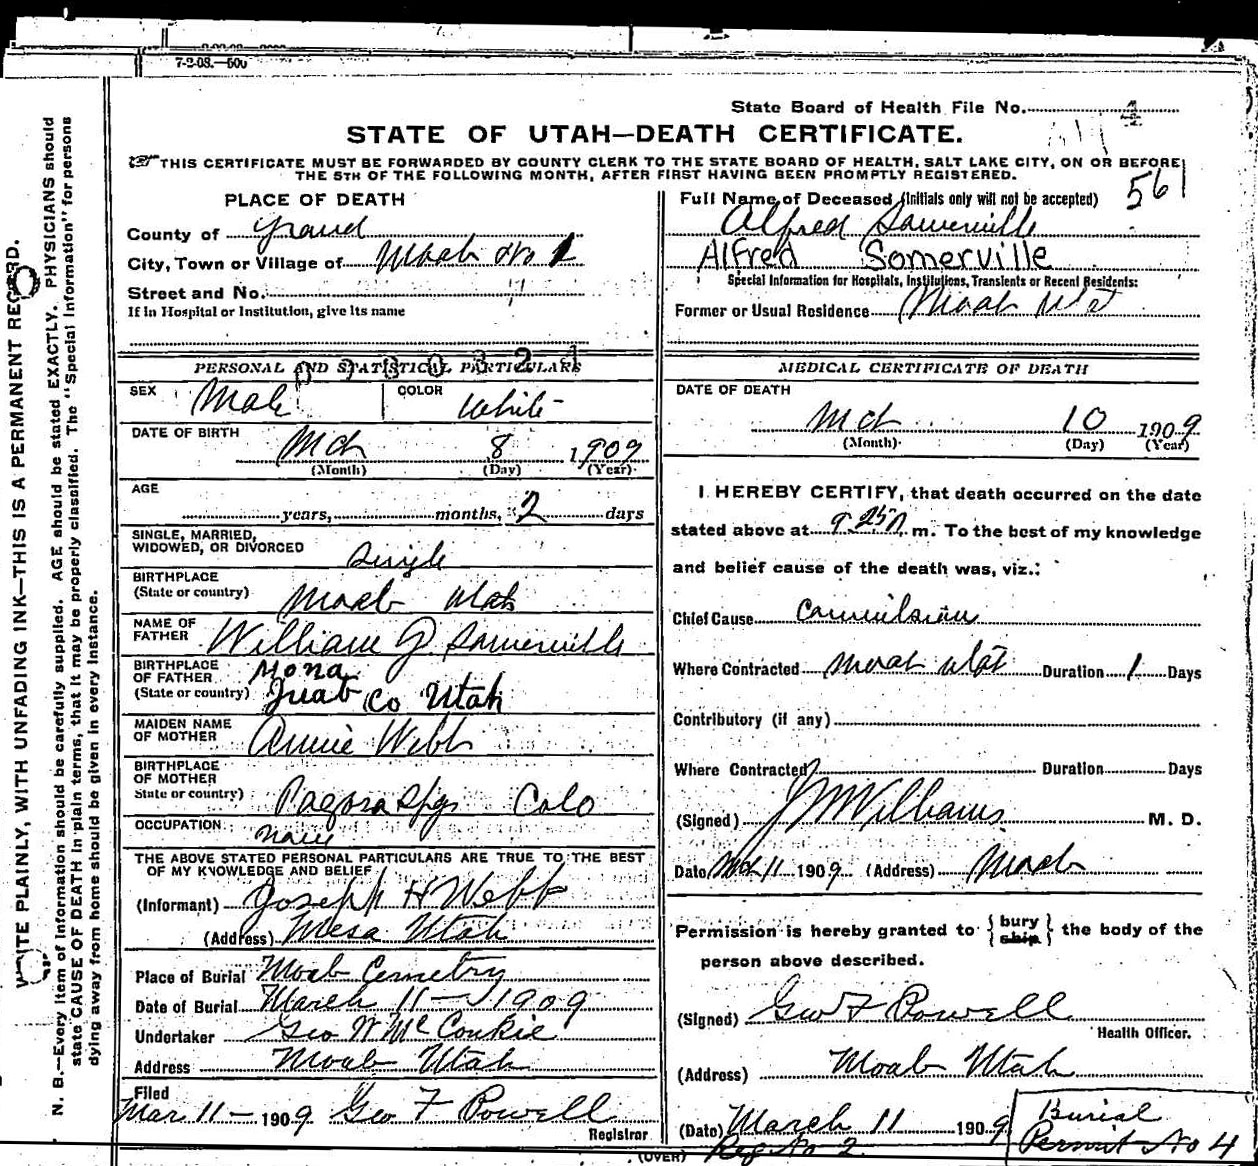 7-2-08.—50
State Board of Health File No. 4
STATE OF UTAH—DEATH CERTIFICATE.
THIS CERTIFICATE MUST BE FORWARDED BY COUNTY CLERK TO THE STATE BOARD OF HEALTH, SALT LAKE CITY, ON OR BEFORE
THE 5TH OF THE FOLLOWING MONTH, AFTER FIRST HAVING BEEN PROMPTLY REGISTERED.
561
WRITE PLAINLY, WITH UNFADING INK—THIS IS A PERMANENT RECORD.
N. B.—Every item of information should be carefully supplied. AGE should be stated EXACTLY. PHYSICIANS should
state CAUSE OF DEATH in plain terms, that it may be properly classified. The "Special Information" for persons
dying away from home should be given in every instance.
PLACE OF DEATH
County of Grand
City, Town or Village of Moab No 1
Street and No.
If in Hospital or Institution, give its name
PERSONAL AND STATISTICAL PARTICULARS
SEX Male COLOR White
DATE OF BIRTH
Mch 8 1909
(Month) (Day) (Year)
AGE
years, months, 2 days
SINGLE, MARRIED,
WIDOWED, OR DIVORCED Single
BIRTHPLACE
(State or country) Moab Utah
NAME OF
FATHER William J Somerville
BIRTHPLACE
OF FATHER Mona
(State or country) Juab Co Utah
MAIDEN NAME
OF MOTHER Annie Webb
BIRTHPLACE
OF MOTHER
State or country) Pagosa Spgs Colo
OCCUPATION none
THE ABOVE STATED PERSONAL PARTICULARS ARE TRUE TO THE BEST
OF MY KNOWLEDGE AND BELIEF
(Informant) Joseph H Webb
(Address) Mesa Utah
Place of Burial Moab Cemetry
Date of Burial March 11—1909
Undertaker Geo W McConkie
Address Moab Utah
Filed
Mar 11—1909 Geo F Powell
Registrar
Full Name of Deceased (Initials only will not be accepted)
Alfred Somerville
Alfred Somerville
Special Information for Hospitals, Institutions, Transients or Recent Residents:
Former or Usual Residence Moab Utah
MEDICAL CERTIFICATE OF DEATH
DATE OF DEATH
Mch 10 1909
(Month) (Day) (Year)
I HEREBY CERTIFY, that death occurred on the date
stated above at 9 25 m. To the best of my knowledge
and belief cause of the death was, viz.:
Chief Cause Convulsion
Where Contracted Moab Utah Duration 1 Days
Contributory (if any)
Where Contracted Duration Days
(Signed) J W Williams M. D.
Date Mch 11 1909 (Address) Moab
Permission is hereby granted to {bury ship} the body of the
person above described.
(Signed) Geo F Powell
Health Officer.
(Address) Moab Utah
(Date) March 11 1909
Reg No 2
Burial
Permit No 4
(OVER)